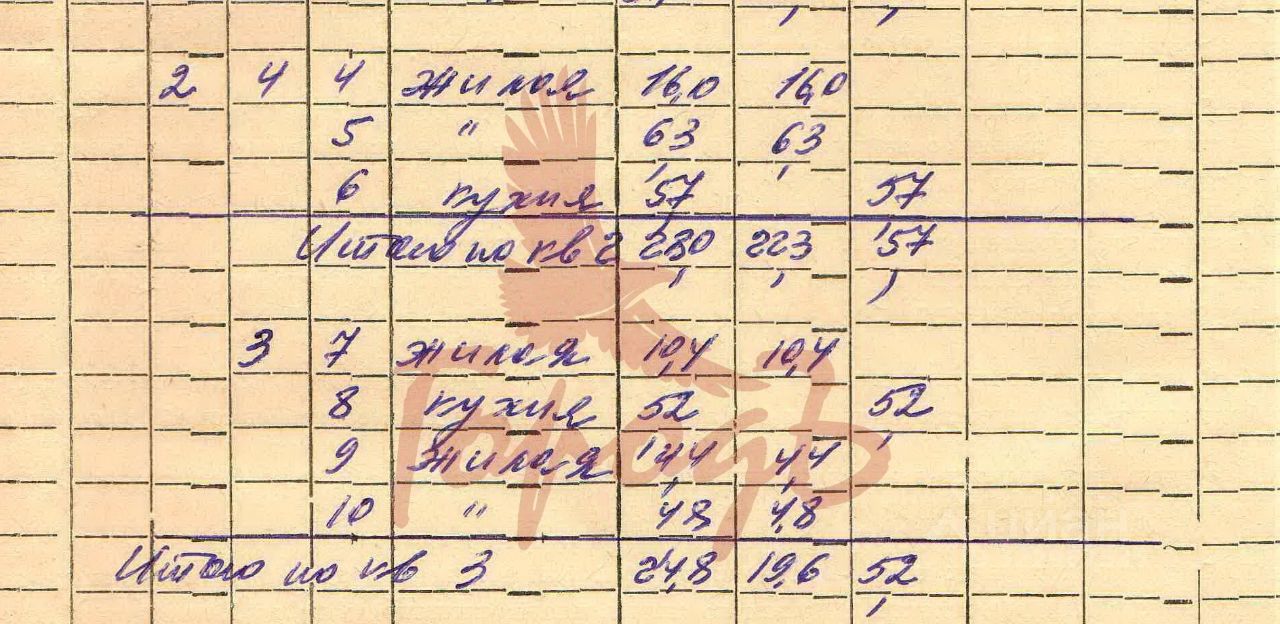 2 4 4 жилая 16,0 16,0
5 " 6,3 6,3
6 кухня 5,7 5,7
Итого по кв 2 28,0 22,3 5,7
3 7 жилая 10,4 10,4
8 кухня 5,2 5,2
9 жилая 4,4 4,4
10 " 4,8 4,8
Итого по кв 3 24,8 19,6 5,2
Городъ